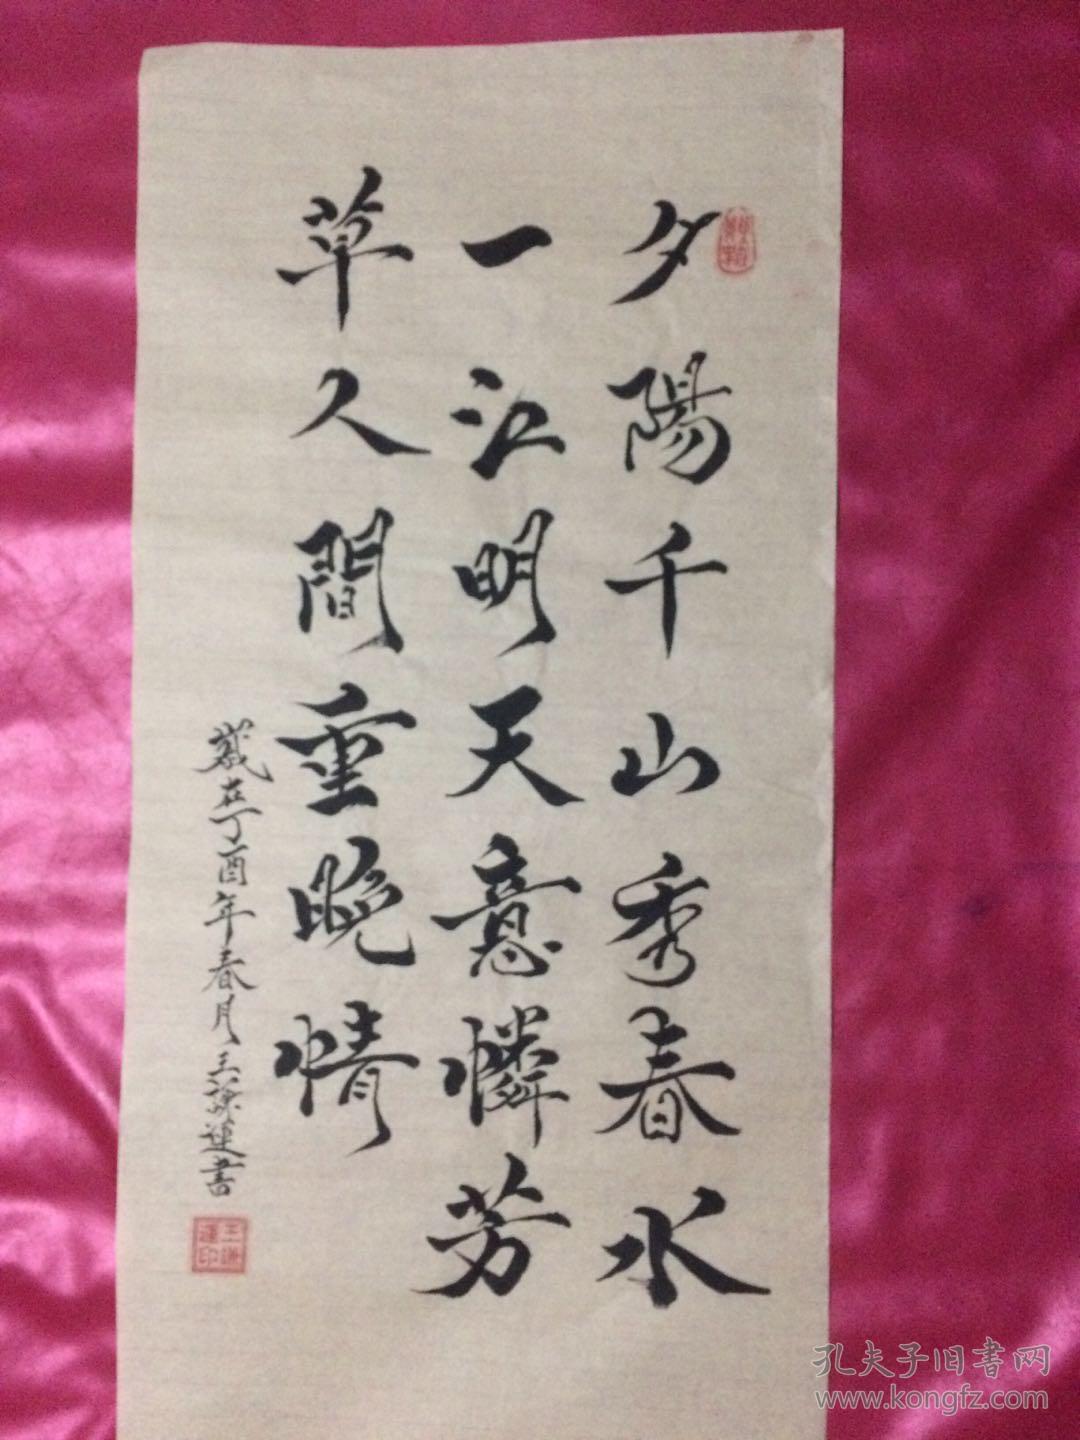 夕陽千山秀春水
一江明天意憐芳
草人間重晚情
歲在丁酉年春月王謙運書
孔夫子旧書网
www.kongfz.com